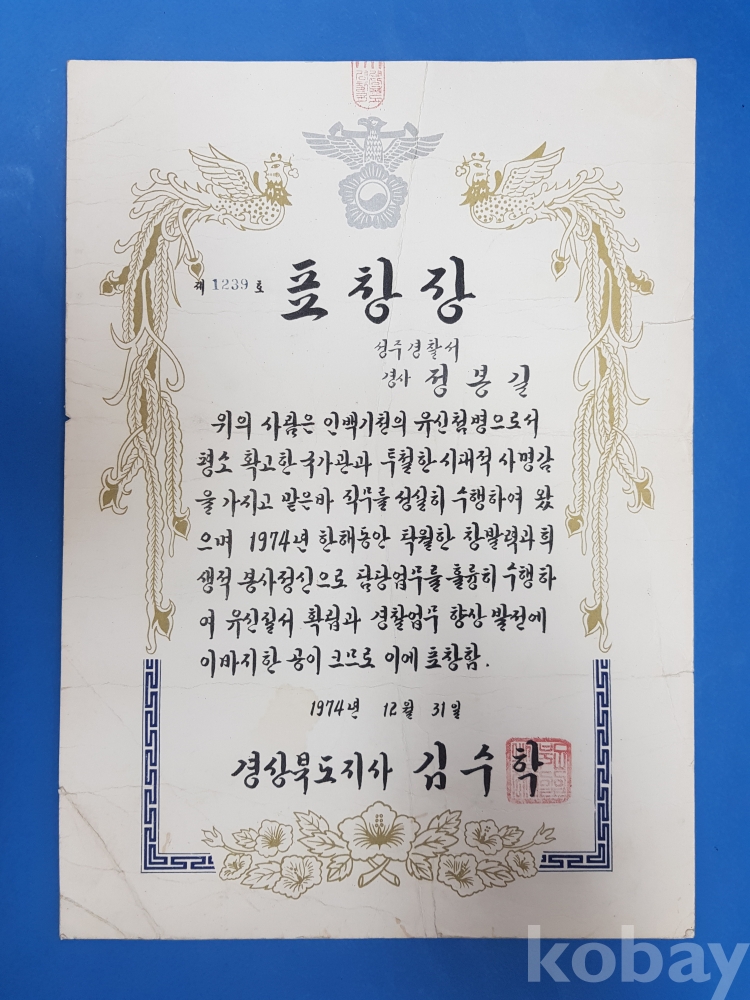 제 1239 호
표창장
성주경찰서
경사 정봉길
위의 사람은 인백기천의 유신첨명으로서
평소 확고한 국가관과 투철한 시대적 사명감
을 가지고 맡은바 직무를 성실히 수행하여 왔
으며 1974년 한해동안 탁월한 창발력과 희
생적 봉사정신으로 담당업무를 훌륭히 수행하
여 유신질서 확립과 경찰업무 향상 발전에
이바지한 공이 크므로 이에 표창함.
1974년 12월 31일
경상북도지사 김수학
kobay